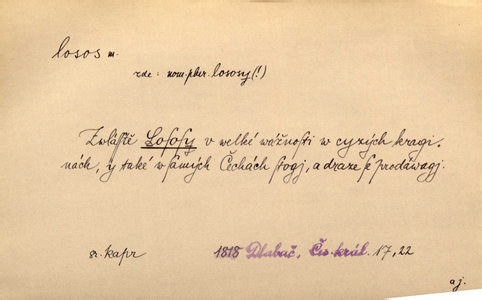 losos m.
zde: nom. plur. lososy (!)
Zwláſſtě Loſoſy v welké wážnosti w cyzých kragi-
nách, y také w ſamých Čechách ſtogj, a draze ſe prodáwagj.
sr. kapr
1818 Dlabač, Čís. král. 17, 22
aj.